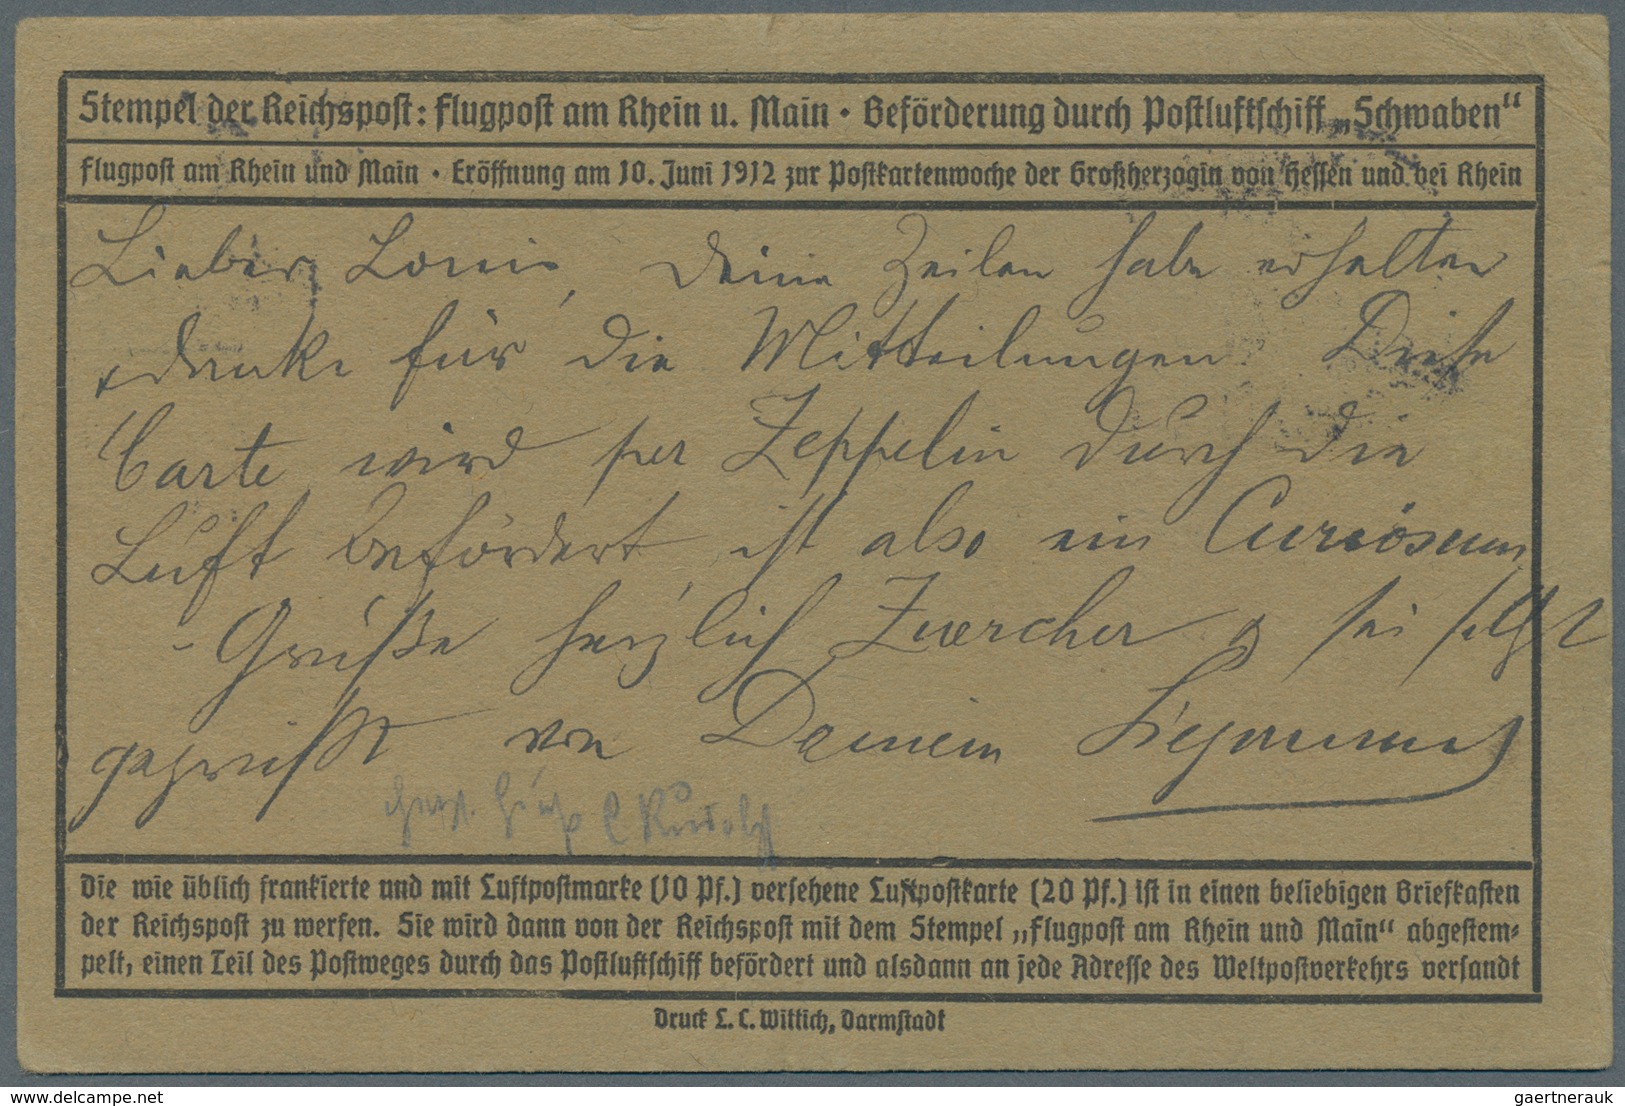 Stempel der Reichspost: Flugpost am Rhein u. Main · Beförderung durch Postluftschiff „Schwaben“
Flugpost am Rhein und Main · Eröffnung am 10. Juni 1912 zur Postkartenwoche der Großherzogin von Hessen und bei Rhein
Lieber Louis, Deine Zeilen habe erhalten
& danke für die Mitteilungen. Diese
Carte wird per Zeppelin durch die
Luft befördert, ist also ein Curiösum
- Grüße herzlich Zuercher & sei selbst
gegrüßt von Deinem
Rudolf
Die wie üblich frankierte und mit Luftpostmarke (10 Pf.) versehene Luftpostkarte (20 Pf.) ist in einen beliebigen Briefkasten
der Reichspost zu werfen. Sie wird dann von der Reichspost mit dem Stempel „Flugpost am Rhein und Main“ abgestem-
pelt, einen Teil des Postweges durch das Postluftschiff befördert und alsdann an jede Adresse des Weltpostverkehrs versandt
Druck L. C. Wittich, Darmstadt
www.delcampe.net
gaertnerauk